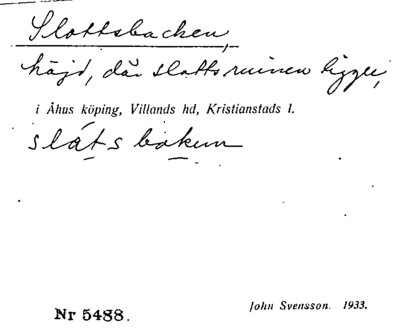 Slottsbacken,
höjd, där slottsruinen ligger,
i Åhus köping, Villands hd, Kristianstads l.
slåt́s bakun
Nr 5488.
John Svensson. 1933.